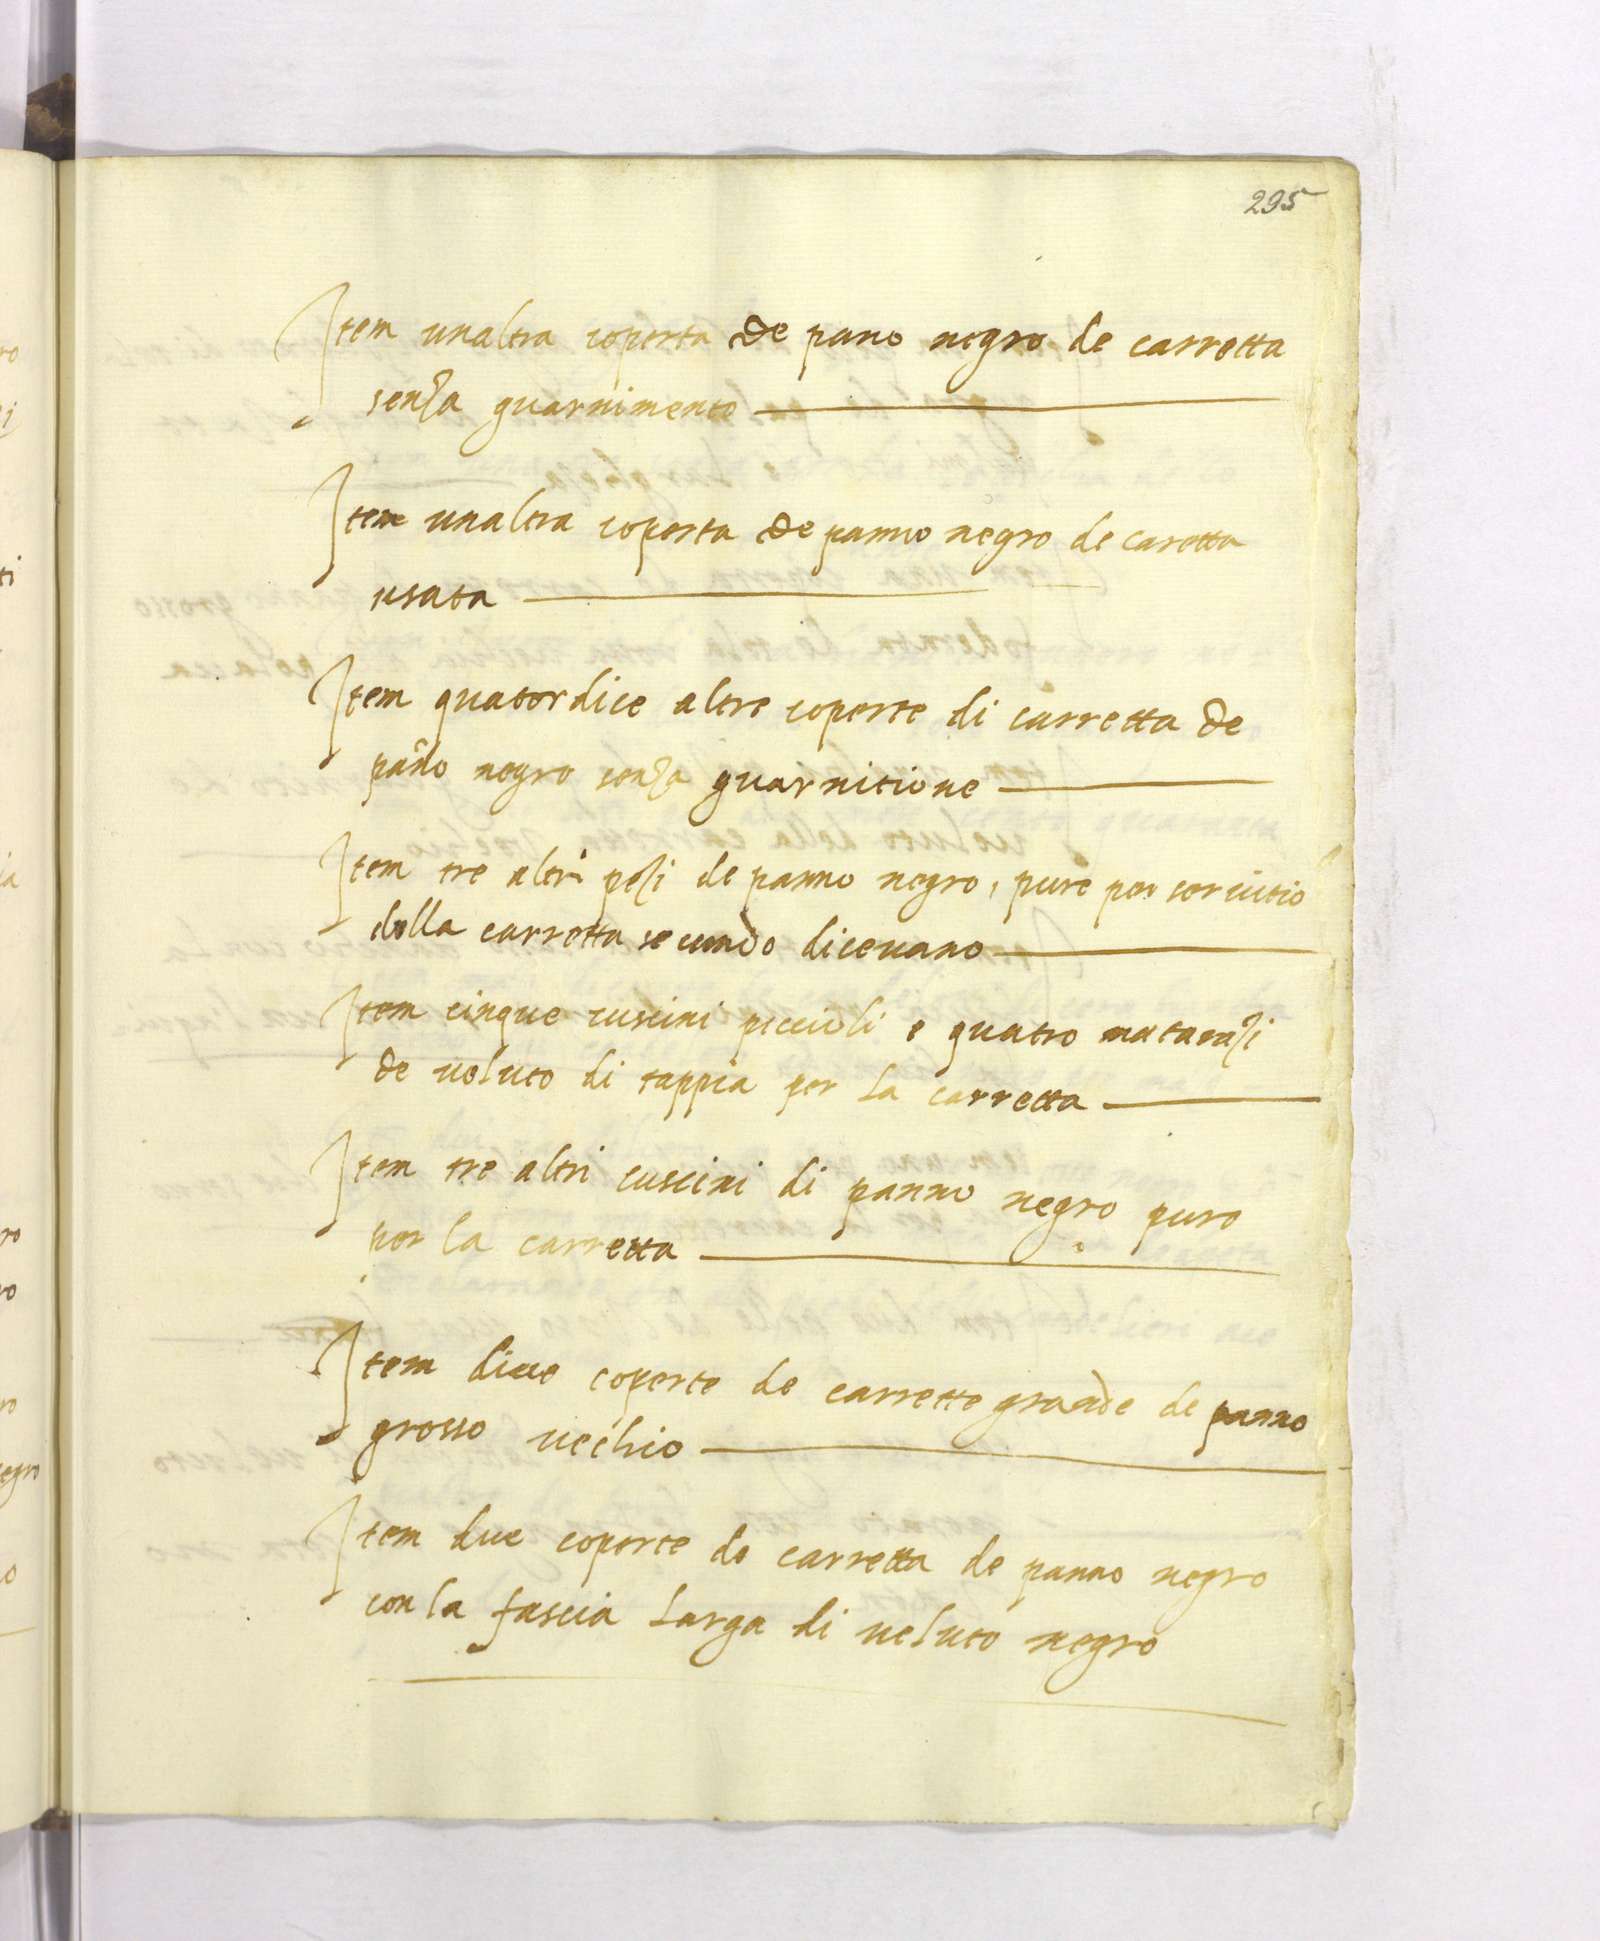 295
Item unaltra coperta de pano negro de carretta
senza guarnimento
Item unaltra coperta de panno negro de caretta
usata
Item quatordice altre coperte di carretta de
pano negro senza guarnitione
Item tre altri pezi de panno negro, pure per servitio
della carretta secundo dicevano
Item cinque cuscini piccioli e quatro matarazi
de veluto di tappia per la carretta
Item tre altri cuscini di panno negro pure
per la carretta
Item due coperte de carrette grande de panno
grosso vechio
Item due coperte de carretta de panno negro
con la fascia larga di veluto negro